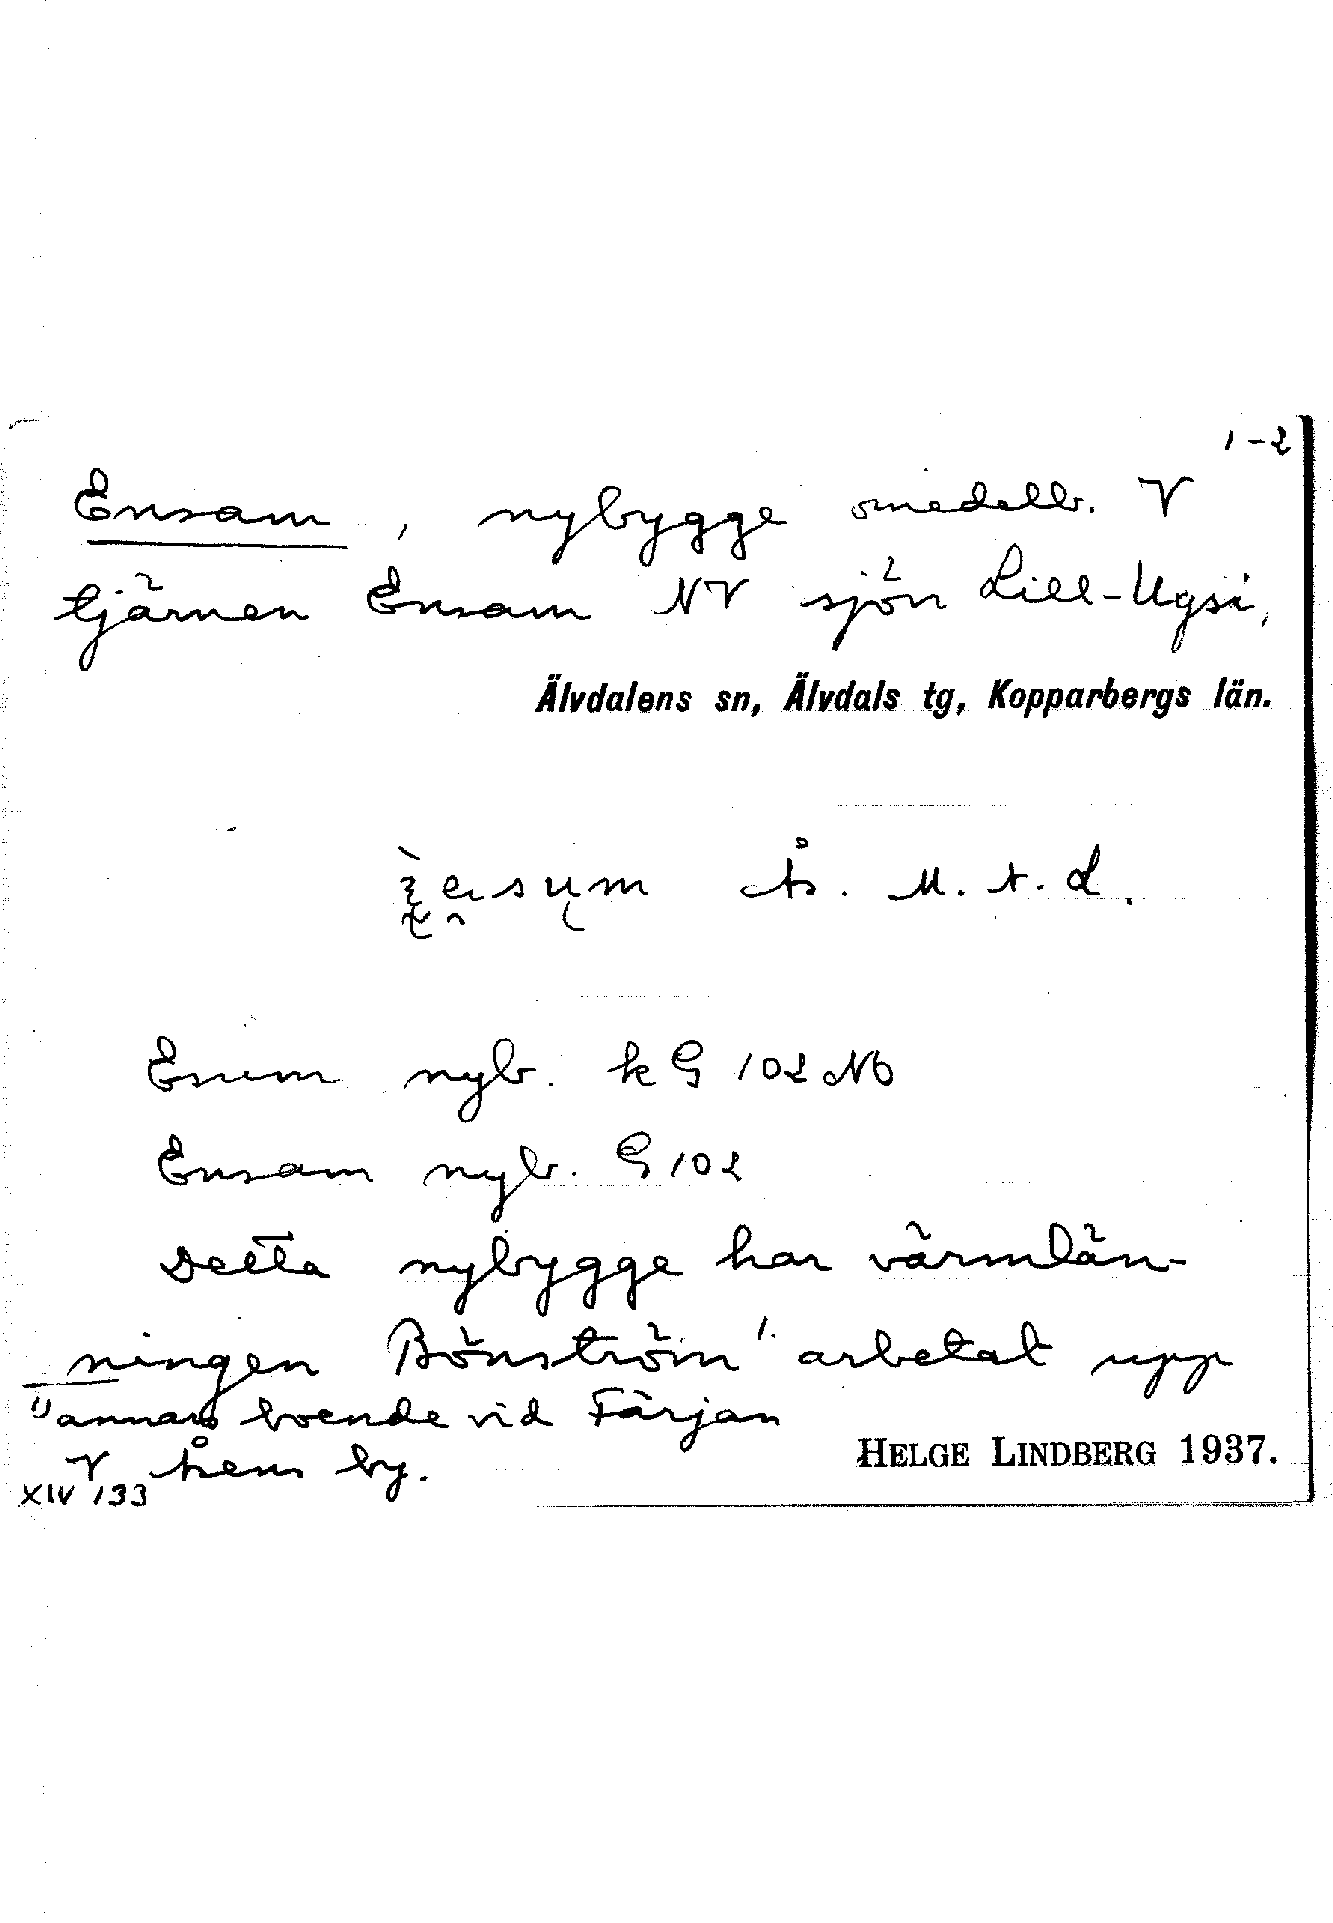 1-2
Ensam, nybygge omedelb. V
tjärnen Ensam NV sjön Lill-Ugsi,
Älvdalens sn, Älvdals tg, Kopparbergs län.
Ås. M. A. L.
Esum nyb. k G 102 NO
Ensam nyb. G 102
Detta nybygge har värmlän-
ningen Bönström 1. arbetat upp
1) annars boende vid Färjan
V Åsens by.
HELGE LINDBERG 1937.
XIV 133